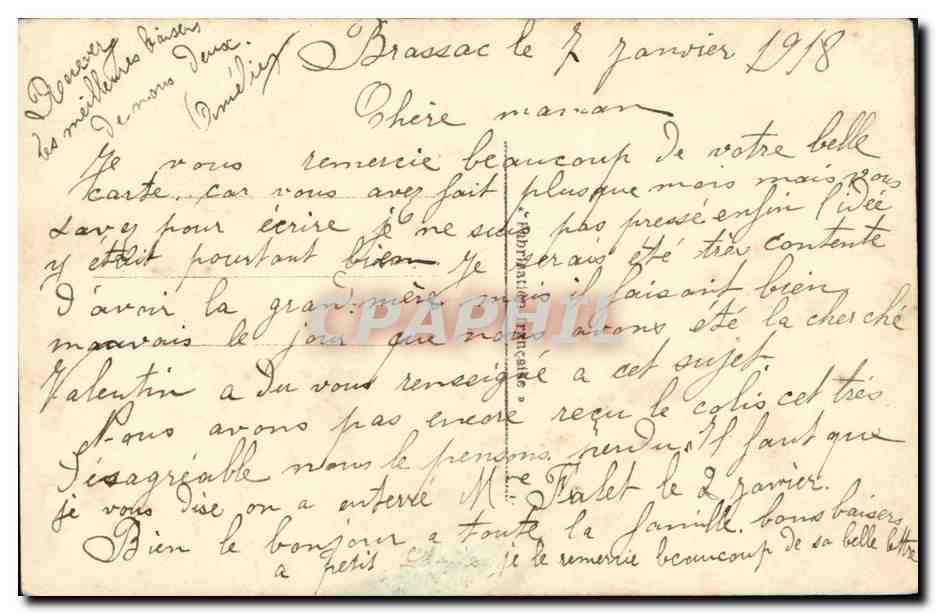 Brassac le 7 Janvier 1918
Chère maman
Je vous remercie beaucoup de votre belle
carte. car vous avez fait plusque mois mais vous
savez pour écrire je ne suis pas pressé enfin l'idée
y était pourtant bien Je serais été très contente
d'avoir la grand-mère mais il faisait bien
mauvais le jour que nous avons été la cherché
Valentin a du vous renseigné a cet sujet.
Nous avons pas encore reçu le colis cet très
désagréable nous le pensons perdu. Il faut que
je vous dise on a enterré Mme Falet le 2 janvier.
Bien le bonjour a toute la famille. bons baisers
a petit je le remercie beaucoup de sa belle lettre
Recevez
les meilleures baisers
de nous deux.
Amélie
"Fabrication française"
CPAPHIL